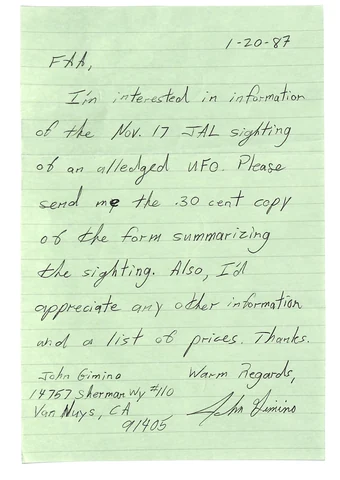 1-20-87
FAA,
I'm interested in information
of the Nov. 17 JAL sighting
of an alledged UFO. Please
send me the .30 cent copy
of the form summarizing
the sighting. Also, I'd
appreciate any other information
and a list of prices. Thanks.
John Gimino
Warm Regards,
14757 Sherman Wy #110
Van Nuys, CA
91405
John Gimino